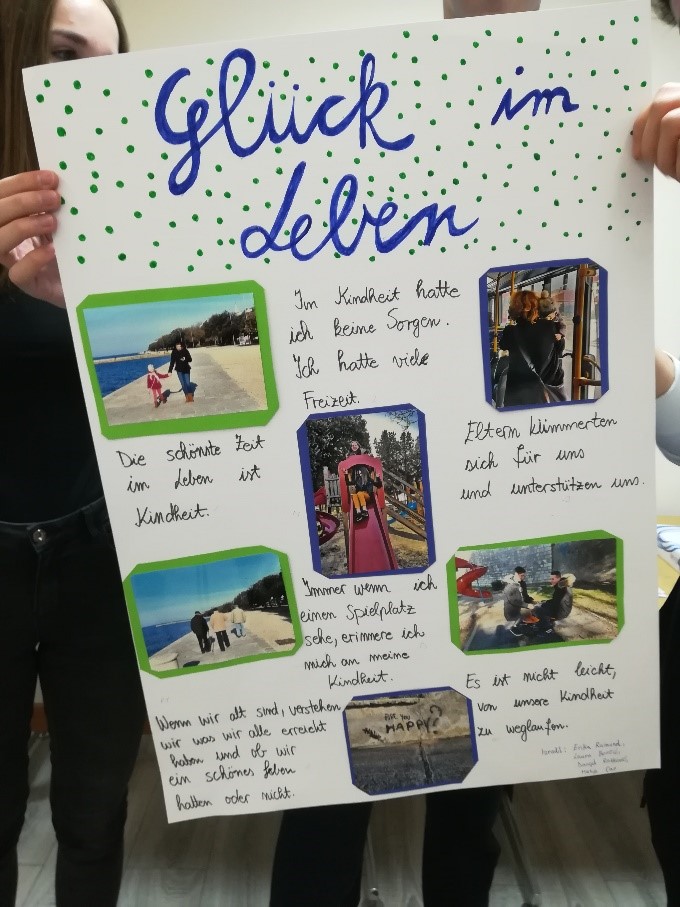 Glück im
Leben
Im Kindheit hatte
ich keine Sorgen.
Ich hatte viele
Freizeit.
Eltern kümmerten
sich für uns
und unterstützen uns.
Die schönste Zeit
im Leben ist
Kindheit.
Immer wenn ich
einen Spielplatz
sehe, erinnere ich
mich an meine
Kindheit.
Es ist nicht leicht,
von unsere Kindheit
zu weglaufen.
Wenn wir alt sind, verstehen
wir was wir alle erreicht
haben und ob wir
ein schönes Leben
hatten oder nicht.
ARE YOU
HAPPY?